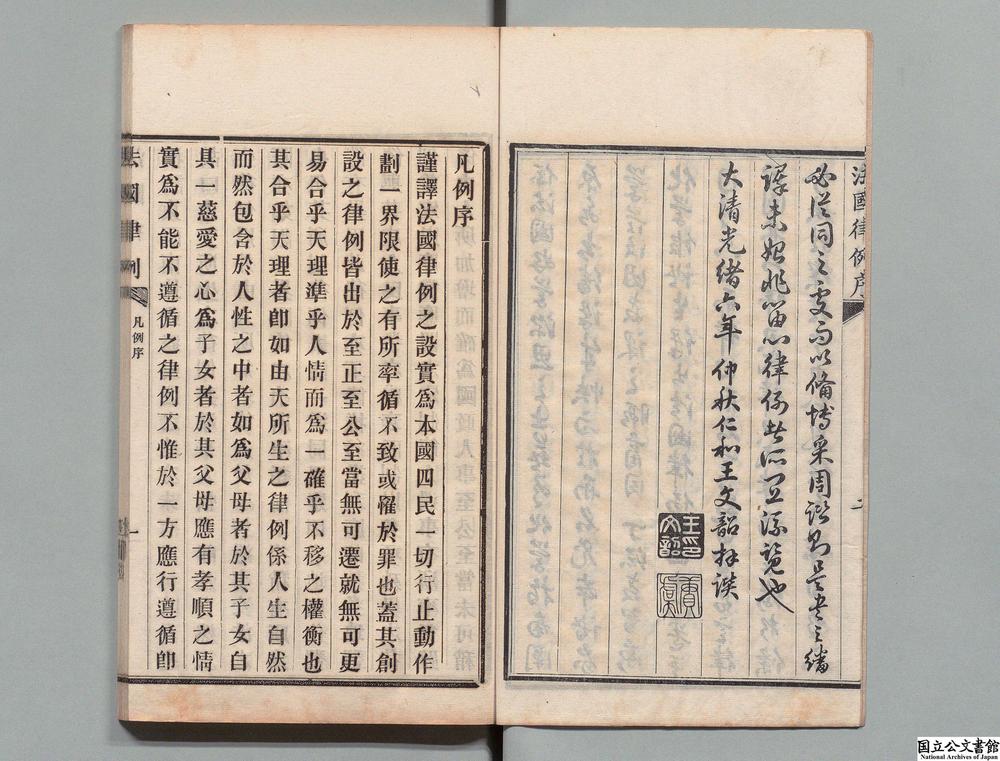 法國律例序
必從同之處而以備博采周諮則是書之繙
譯未始非留心律例者所宜流覽也
大清光緒六年仲秋仁和王文韶拜譔
二
凡例序
謹譯法國律例之設實爲本國四民一切行止動作
劃一界限使之有所率循不致或罹於罪也蓋其創
設之律例皆出於至正至公至當無可遷就無可更
易合乎天理準乎人情而爲一確乎不移之權衡也
其合乎天理者卽如由天所生之律例係人生自然
而然包含於人性之中者如爲父母者於其子女自
具一慈愛之心爲子女者於其父母應有孝順之情
實爲不能不遵循之律例不惟於一方應行遵循卽
法國律例
凡例序
一
国立公文書館
National Archives of Japan